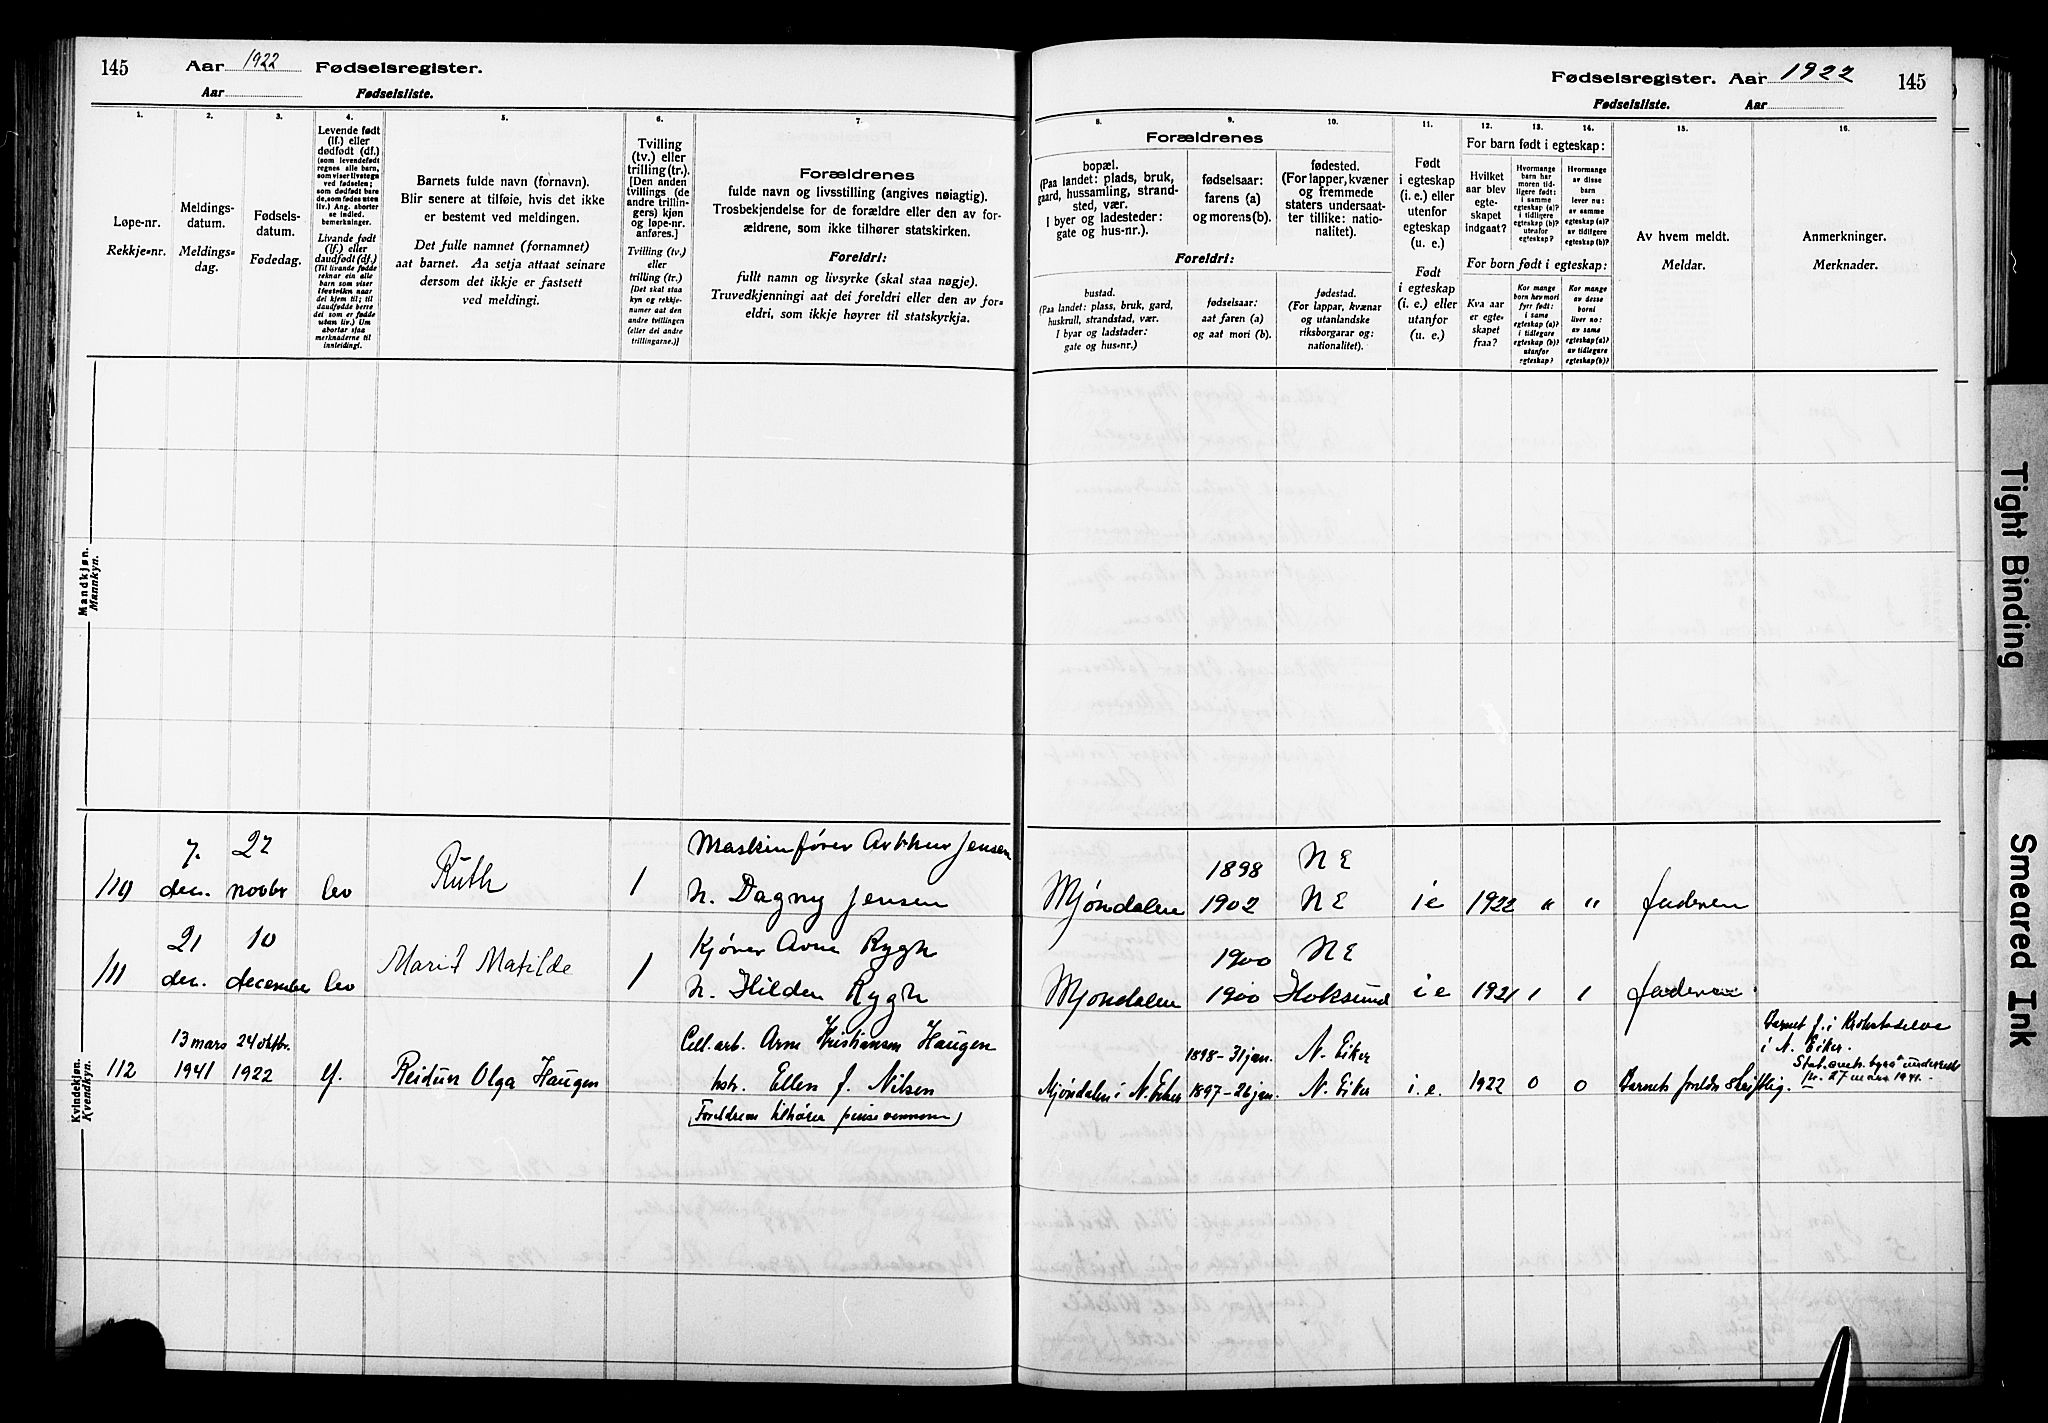 145 Aar 1922 Fødselsregister.
Aar Fødselsliste.
Fødselsregister. Aar 1922 145
Fødselsliste. Aar
1.
Løpe-nr.
Rekkje-nr.
2.
Meldings-
datum.
Meldings-
dag.
3.
Fødsels-
datum.
Fødedag.
4.
Levende født
(lf.) eller
dødfødt (df.)
(som levendefødt
regnes alle barn,
som viser livstegn
ved fødselen;
som dødfødt bare
de, som fødes uten
liv.) Ang. aborter
se indled.
bemerkninger.
Livande født
(lf.) eller
daudfødt (df.)
(Til livande fødde
reknar ein alle
born som viser
livsteikn naar
dei kjem til; til
daudfødde berre
dei som er fødde
utan liv.) Um
abortar sjaa
merknaderne til
innleiding).
5.
Barnets fulde navn (fornavn).
Blir senere at tilføie, hvis det ikke
er bestemt ved meldingen.
Det fulle namnet (fornamnet)
aat barnet. Aa setja attaat seinare
dersom det ikkje er fastsett
ved meldingi.
6.
Tvilling
(tv.) eller
trilling (tr.).
[Den anden
tvillings (de
andre trillin-
gers) kjøn
og løpe-nr.
anføres.]
Tvilling (tv.)
eller
trilling (tr.)
[Det skal staa
kyn og rekkje-
numer aat den
andre tvillingen
(eller dei andre
trillingarne.)]
7.
Forældrenes
fulde navn og livsstilling (angives nøiagtig).
Trosbekjendelse for de forældre eller den av for-
ældrene, som ikke tilhører statskirken.
Foreldri:
fullt namn og livsyrke (skal staa nøgje).
Truvedkjenningi aat dei foreldri eller den av for-
eldri, som ikkje høyrer til statskyrkja.
Forældrenes
8.
bopæl.
(Paa landet: plads, bruk,
gaard, hussamling, strand-
sted, vær.
I byer og ladesteder:
gate og hus-nr.).
9.
fødselsaar:
farens (a)
og morens (b).
10.
fødested.
(For lapper, kvæner
og fremmede
staters undersaat-
ter tillike: natio-
nalitet).
Foreldri:
bustad.
(Paa landet: plass, bruk, gard,
huskrull, strandstad, vær.
I byar og ladstader:
gate og hus-nr.)
fødselsaar:
aat faren (a)
og aat mori (b).
fødestad.
(For lappar, kvænar
og utanlandske
riksborgarar og:
nationalitet).
11.
Født
i egteskap
(i. e.) eller
utenfor
egteskap
(u. e.)
Født
i egteskap
(i. e.) eller
utanfor
(u. e.)
12. 13. 14.
For barn født i egteskap:
Hvilket
aar blev
egte-
skapet
indgaat?
Hvormange
barn har
moren tid-
ligere født:
i samme
egteskap (a)?
i tidligere
egteskap (b)?
utenfor
egteskap?
Hvormange
av disse
barn
lever nu:
av samme
egteskap (a)?
av tidligere
egteskap (b)?
For born født i egteskap:
Kva aar
er egte-
skapet
fraa?
Kor mange
born hev mori
fyrr født:
i same
egteskap (a)?
i tidlegare
egteskap (b)?
utanfor
egteskap?
Kor mange
av desse
borni
liver no:
av same
egteskap (a)?
av tidlegare
egteskap (b)?
15.
Av hvem meldt.
Meldar.
16.
Anmerkninger.
Merknader.
Mandkjøn.
Mannkyn.
Kvindekjøn.
Kvendkyn.
7. 27 Maskinfører Arthur Jensen 1898 N E
110 dec. novbr lev Ruth 1 h. Dagny Jensen Mjøndalen 1902 N E i e 1922 " " faderen
21 10 Kjører Arne Rygh 1900 N E
111 dec. december lev Marit Matilde 1 h. Hilden Rygh Mjøndalen 1900 Hoksund i e 1921 1 1 faderen
13 mars 24 oktbr. Cell. arb. Arne Kristiansen Haugen 1898 - 31 jan. N. Eiker
112 1941 1922 lf. Reidun Olga Haugen hstr. Ellen f. Nilsen Mjøndalen i N. Eiker 1897 - 26 jan. N. Eiker i. e. 1922 0 0 Barnets foreldre skriftlig.
(Foreldrene tilhører pinsevennene)
Barnet f. i Krokstadelva
i N. Eiker.
Stat. sentr. byrå underrett
27 mars 1941.
Tight Binding
Smeared Ink